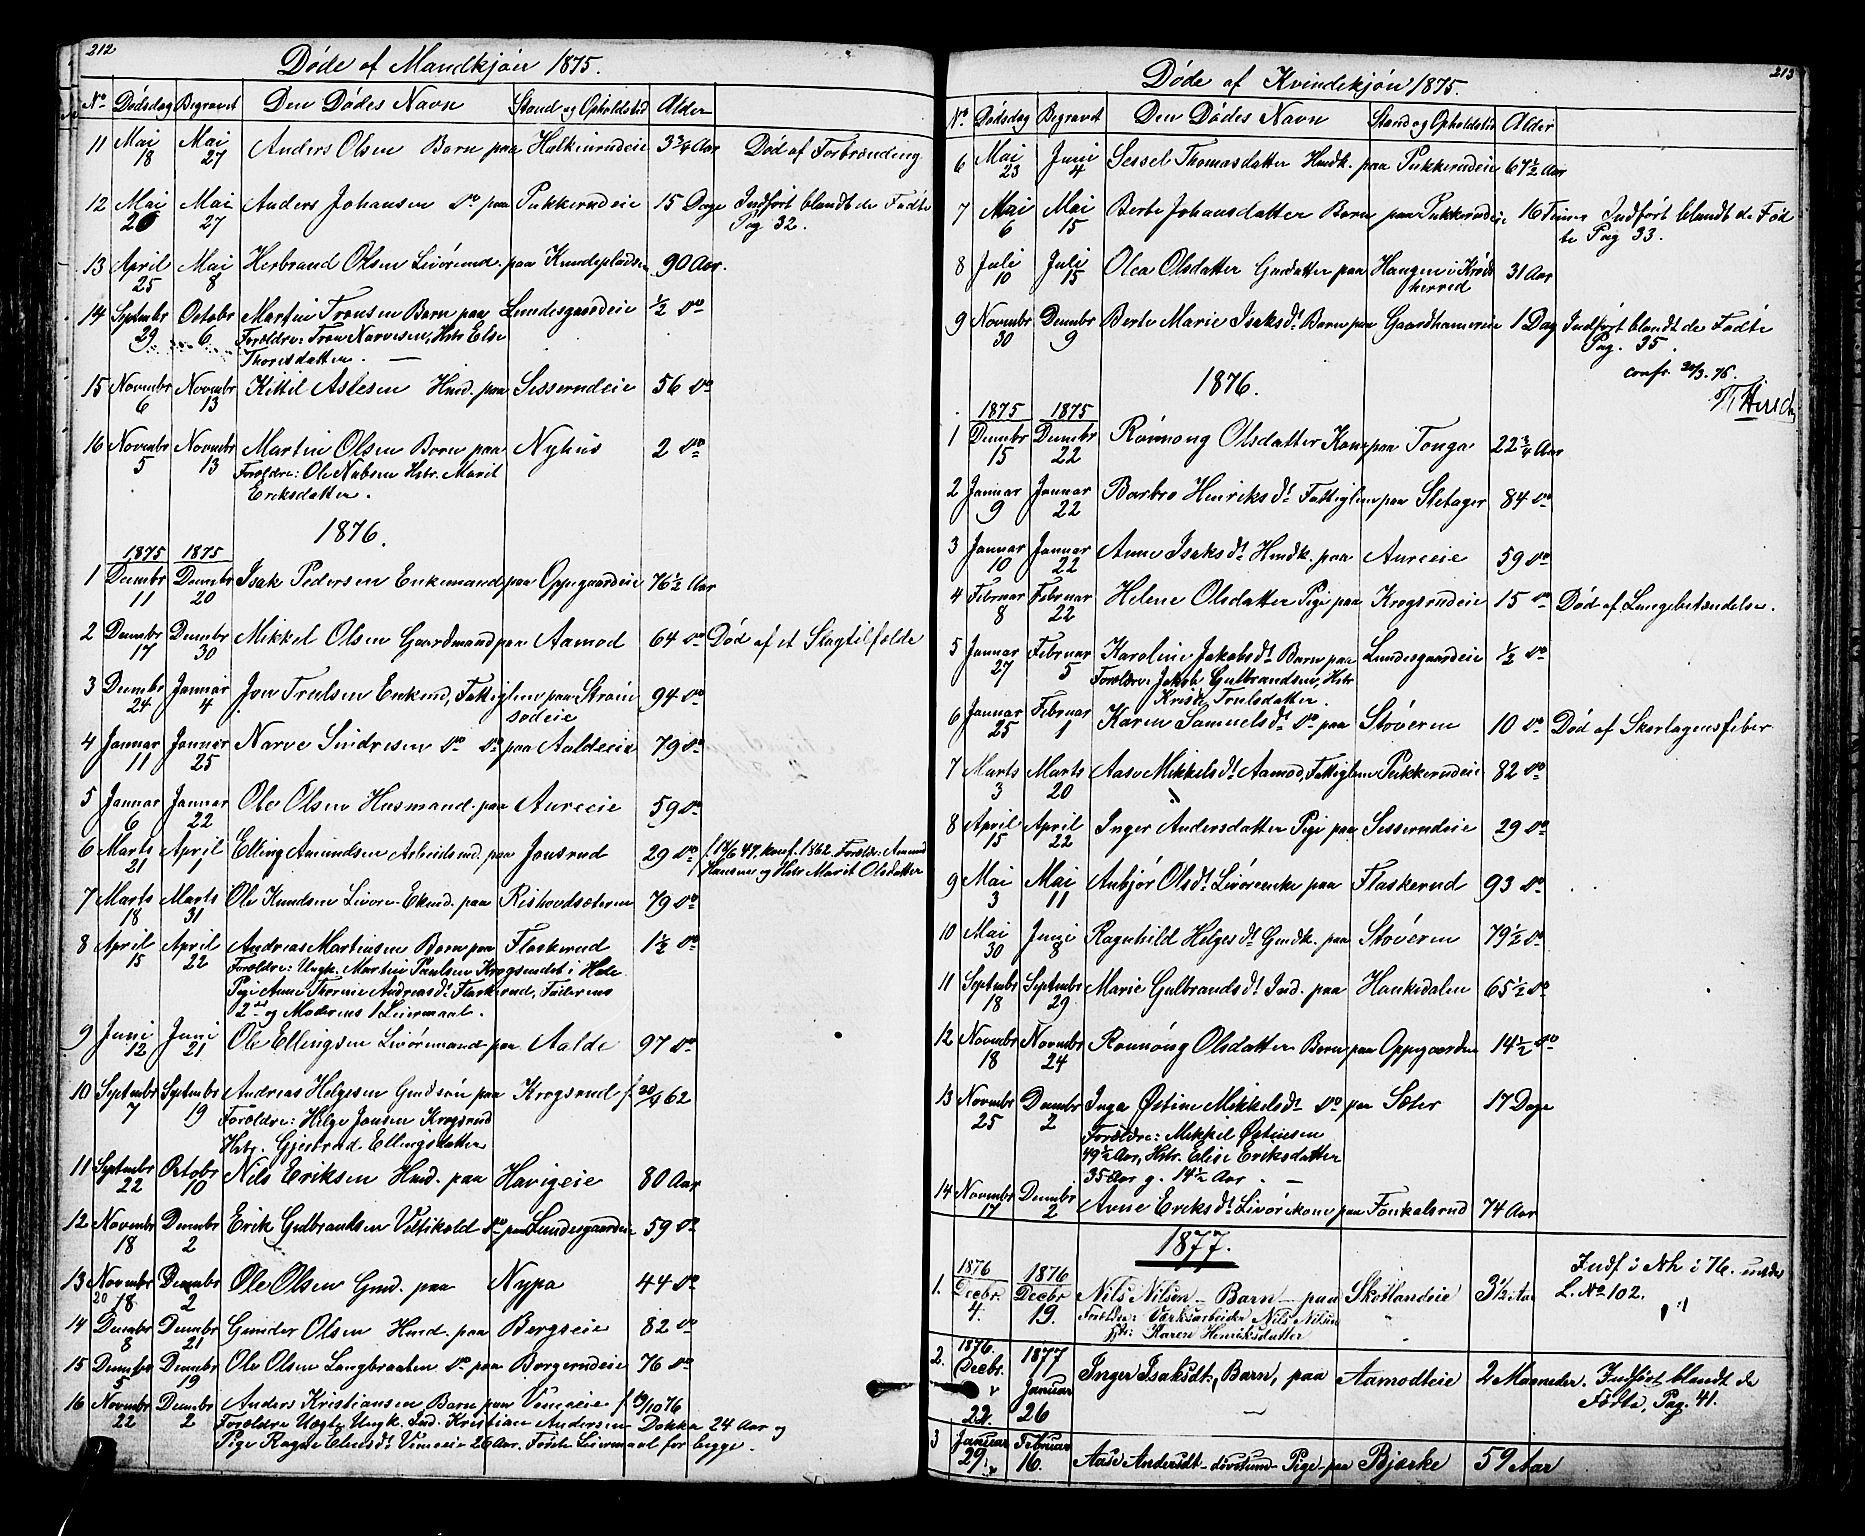 212
Døde af Mandkjøn 1875.
No Dødsdag Begravet Den Dødes Navn Stand og Opholdsted Alder
11 Mai 18 Mai 27 Anders Olsen Barn paa Halkinrudeie 3 3/4 Aar Død af Forbrænding
12 Mai 20 Mai 27 Anders Johansen Do paa Pukkerudeie 15 Dage Indført blandt de Fødte
Pag 32.
13 April 25 Mai 8 Herbrand Olsen Livøremd. paa 90 Aar.
14 Septembr 29 Octobr 6 Martin Tronsen Barn paa Lundesgaardeie 1/2 Do
Forældre: Tron Narvesen, Hstr Else
Thoresdatter. —
15 Novembr 6 Novembr 13 Kittil Aslesen Hmd. paa Sesserudeie 56 Do
16 Novembr 5 Novembr 13 Martin Olsen Barn paa Nyhus 2 Do
Forældre: Ole Nubsen Hstr. Marit
Eriksdatter.
1876.
1875 1875
1 Decembr 11 Decembr 20 Isak Pedersen Enkemand paa Oppegaardeie 76 1/2 Aar
2 Decembr 17 Decembr 30 Mikkel Olsen Gaardmand paa Aamod 64 Do Død af et Slagtilfælde
3 Decembr 24 Januar 4 Jon Trulsen Enkemd, Fattiglem paa Strøm
sødeie 94 Do
4 Januar 11 Januar 25 Narve Sindresen Do Do paa Aaldeeie 79 Do
5 Januar 6 Januar 22 Ole Olsen Husmand paa Aureeie 59 Do
6 Marts 21 April Elling Amundsen Arbeidsmd. paa Jonsrud 29 Do f. 14/6 47. konf. 1862. Forældr: Amund
Hansen og Hstr Marit Olsdatter
7 Marts 18 Marts 31 Ole Knudsen Livøre-Ekmd. paa Rishovdsæteren 79 Do
8 April 15 April 22 Andreas Martinsen Barn paa Flaskerud 1 1/2 Do
Forældre: Ungk. Martin Paulsen Krogsrudet i Hole
Pige Anne Thorine Andreasdr Flaskerud, Faderens
2det og Moderens 1 Leiermaal.
9 Juni 12 Juni 21 Ole Ellingsen Livøremand paa Aalde 97 Do
10 Septembr 7 Septembr 19 Andreas Helgesen Gmdssøn paa Krogsrud f 20/4 62
Forældre: Helge Jonsen Krogsrud
Hstr. Gjertrud Ellingsdatter
11 Septembr 22 Octobr 10 Nils Eriksen Hmd. paa Havigeie 80 Aar
12 Novembr 18 Decembr 2 Erik Gulbrandsen Vestikold Do paa Lundesgaardeie 59 Do
13 Novembr 20 18 Decembr 2 Ole Olsen Gmd. paa Nypa 44 Do
14 Decembr 8 Decembr 21 Gunder Olsen Hmd. paa Bergseie 82 Do
15 Decembr 5 Decembr 19 Ole Olsen Langbraaten Do paa Borgerudeie 76 Do
16 Novembr 22 Decembr 2 Anders Kristiansen Barn paa Vimeeie f 19/10 76
Forældre Uægte Ungk. Ind. Kristian Andersen Dokka 24 Aar og
Pige Ragne Elensdr Vimeeie 26 Aar. Første Leiermaal for begge.
213
Døde af Kvindekjøn 1875.
No Dødsdag Begravet Den Dødes Navn Stand og Opholdsted Alder
6 Mai 23 Juni 4 Sessel Thomasdatter Hmdk. paa Pukkerudeie 67 1/2 Aar
7 Mai 6 Mai 15 Berte Johansdatter Barn paa Pukkerudeie 16 Timer Indført blandt de Fød
te Pag 33.
8 Juli 10 Juli 15 Olea Olsdatter Gmdatter paa Haugen i Kråds
herred 31 Aar
9 Novembr 30 Decembr 9 Berte Marie Isaksdr Barn paa Gaardhammereie 1 Dag Indført blandt de Fødte
Pag. 35.
confr. 20/3. 76.
1876.
1875 1875
1 Decembr 15 Decembr 22 Rønnoug Olsdatter Kone paa Tonga 22 3/4 Aar
2 Januar 9 Januar 22 Barbro Henriksdr Fattiglem paa Sletager 84 Do
3 Januar 10 Januar 22 Anne Isaksdr Hmdk. paa Aureeie 59 Do
4 Februar 8 Februar 22 Helene Olsdatter Pige paa Krogsrudeie 15 Do Død af Lungebetændelse.
5 Januar 27 Februar 5 Karoline Jakobsdr Barn paa Lundesgaardeie 1/2 Do
Forældre: Jakob Gulbrandsen, Hstr
Kristi Trulsdatter.
6 Januar 25 Februar 1 Karen Samuelsdr Do paa Støveren 10 Do Død af Skarlagensfeber
7 Marts 3 Marts 20 Aase Mikkelsdr Aamod, Fattiglem Pukkerudeie 82 Do
8 April 15 April 22 Inger Andersdatter Pige paa Sesserudeie 29 Do
9 Mai 3 Mai 11 Anbjør Olsdr Livøreenke paa Flaskerud 93 Do
10 Mai 30 Juni 8 Ragnhild Helgesdr Gmdk. paa Støveren 79 1/2 Do
11 Septembr 18 Septembr 29 Marie Gulbrandsdr Ind. paa Hauksdalen 65 1/2 Do
12 Novembr 18 Novembr 24 Rønnoug Olsdatter Barn paa Oppegaarden 14 1/2 Do
13 Novembr 25 Decembr 2 Inga Østine Mikkelsdr Do paa Sæter 17 Dage
Forældre: Mikkel Østensen
49 1/2 Aar, Hstr. Elise Eriksdatter
35 Aar g. 14 1/2 Aar. —
14 Novembr 17 Decembr 2 Anne Eriksdr Livørekone paa Fonkalsrud 74 Aar
1877.
1. 1876 Decbr. 4. 1876 Decbr 19. Nils Nilsen — Barn — paa Skotlandeie 3 1/2 Aar Indf i Nh i 76. under
L. No 102.
Forældre: Værksarbeider Nils Nilsen
Hstr: Karen Henriksdatter
2. 1876. Decbr. 22. 1877 Januar 26 Inger Isaksdt., Barn, paa Aamodteie 2 Maaneder. Indført blandt de
Fødte, Pag. 41.
3 Januar 29. Februar 16. Aase Andersdt — døvstum Pige — paa Bjærke 59 Aar